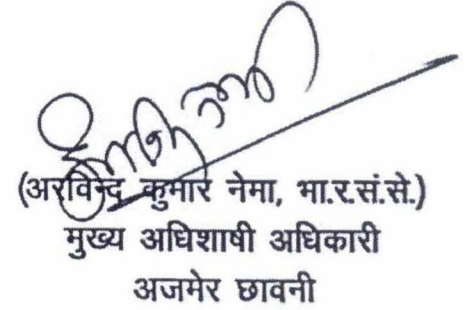 (अरविन्द कुमार नेमा, भा.र.सं.से.)
मुख्य अधिशाषी अधिकारी
अजमेर छावनी